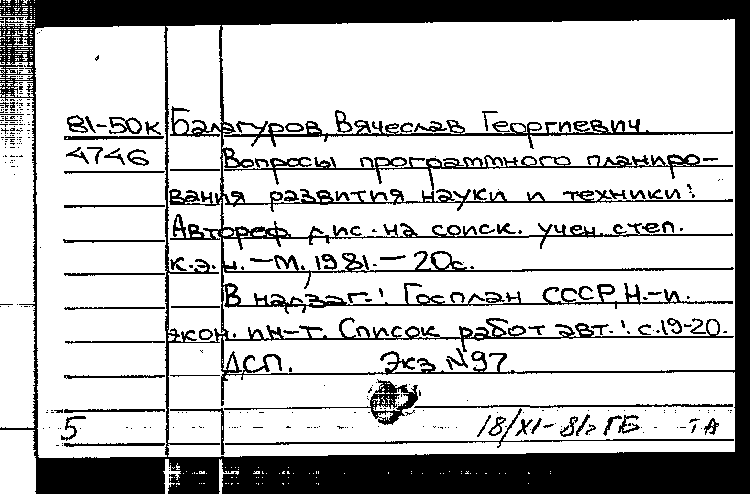 81-50к Балагуров, Вячеслав Георгиевич.
4746 Вопросы программного планиро-
вания развития науки и техники:
Автореф. дис. на соиск. учен. степ.
к.э.н. — М., 1981. — 20с.
В надзаг.: Госплан СССР, Н.-и.
экон. ин-т. Список работ авт.: с.19-20.
ДСП. Экз. №97.
5 18/XI-81г ГБ ТА